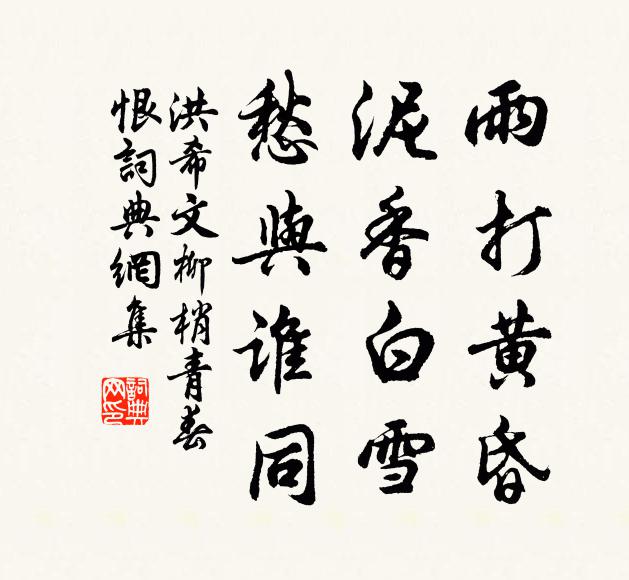 雨打黄昏
泥香白雪
愁與誰同
洪希文柳梢青春
恨詞典網集
詞典
网印